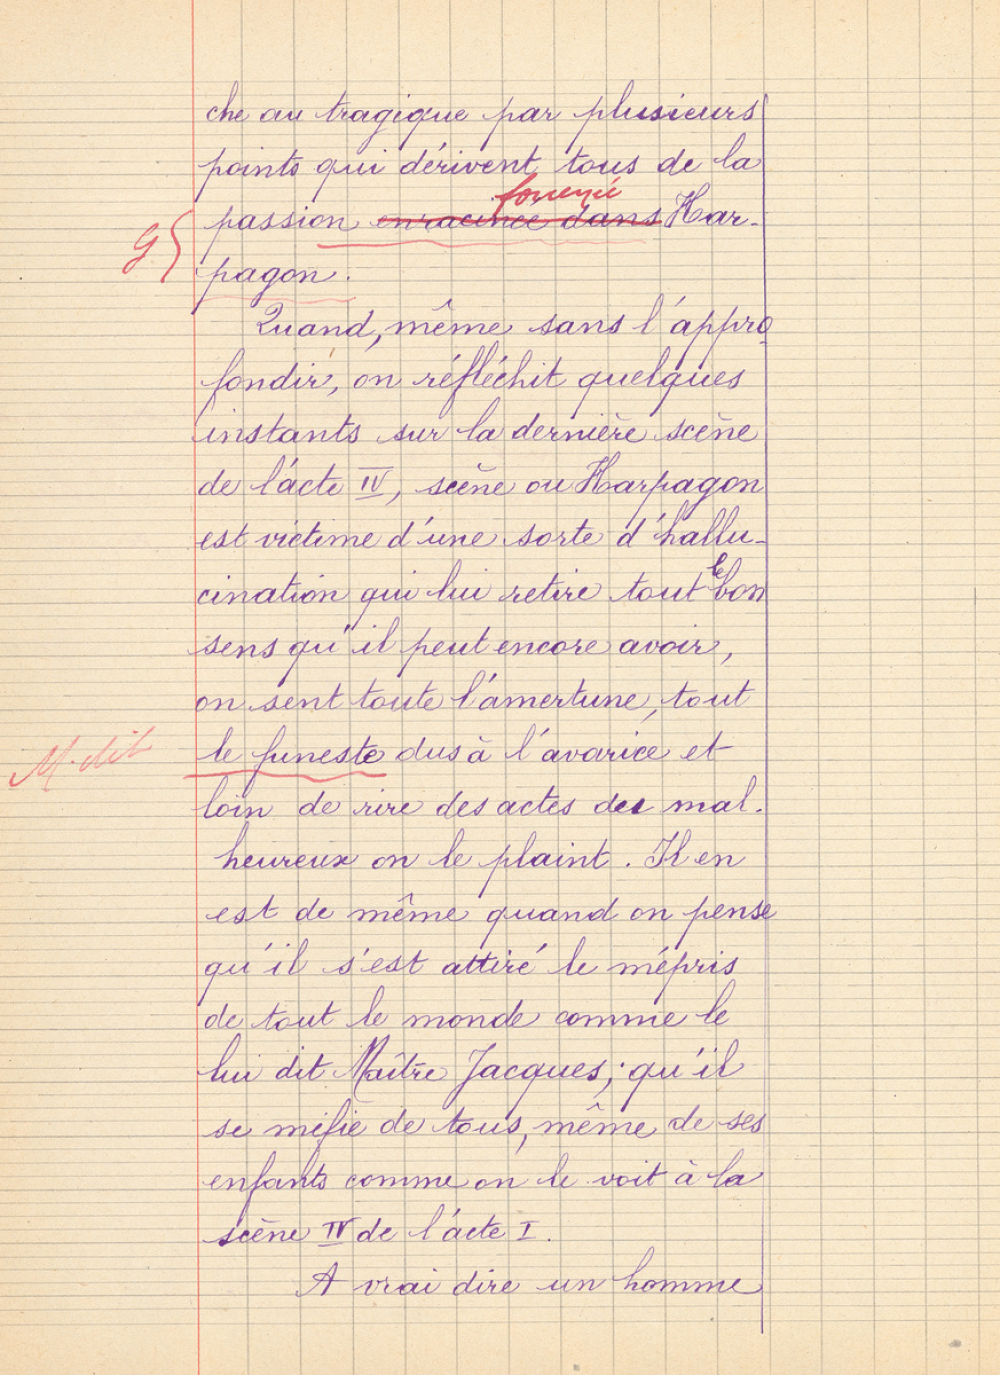 che au tragique par plusieurs
points qui dérivent tous de la
passion enracinée dans Har-
G
pagon.
Quand, même sans l'appro
fondir, on réfléchit quelques
instants sur la dernière scène
de l'acte IV, scène ou Harpagon
est victime d'une sorte d'hallu-
cination qui lui retire tout le bon
sens qu'il peut encore avoir,
on sent toute l'amertune, tout
M. dit
le funeste dus à l'avarice et
loin de rire des actes des mal-
heureux on le plaint. Il en
est de même quand on pense
qu'il s'est attiré le mépris
de tout le monde comme le
lui dit Maître Jacques; qu'il
se méfie de tous, même de ses
enfants comme on le voit à la
scène IV de l'acte I.
A vrai dire un homme